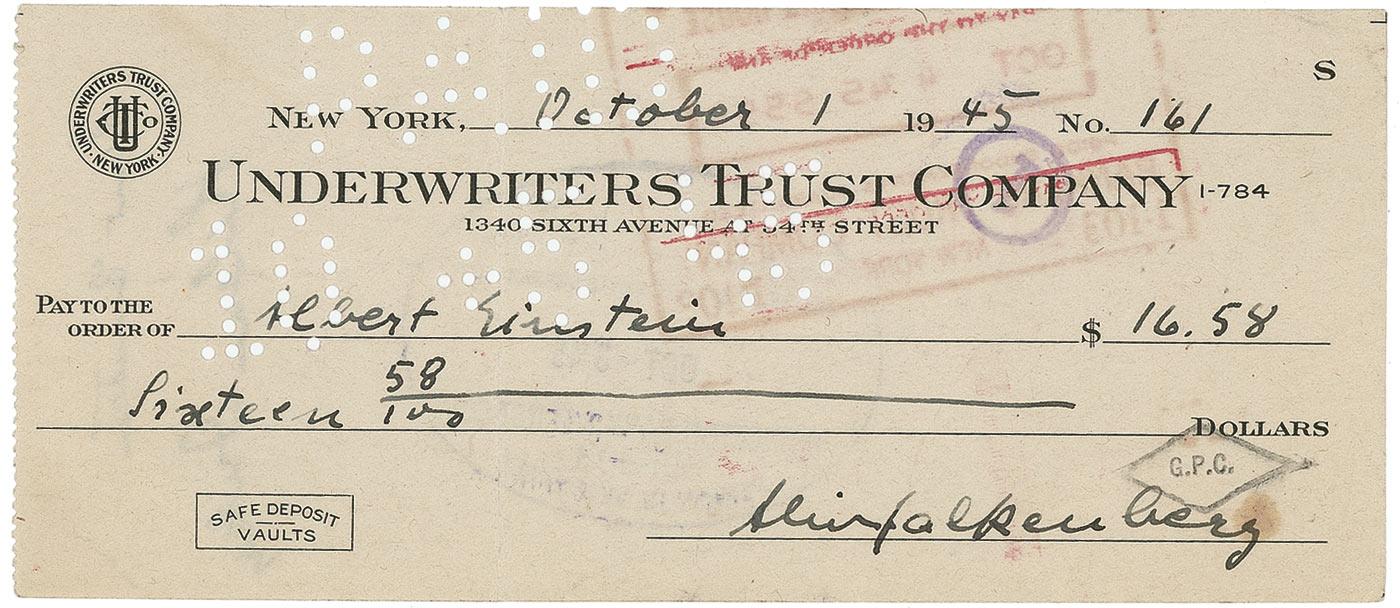 S
UNDERWRITERS TRUST COMPANY
NEW YORK
NEW YORK, October 1 1945 No. 161
UNDERWRITERS TRUST COMPANY 1-784
1340 SIXTH AVENUE AT 54TH STREET
PAY TO THE
ORDER OF Albert Einstein $ 16.58
Sixteen 58/100 DOLLARS
G.P.C.
SAFE DEPOSIT
VAULTS
falkenberg